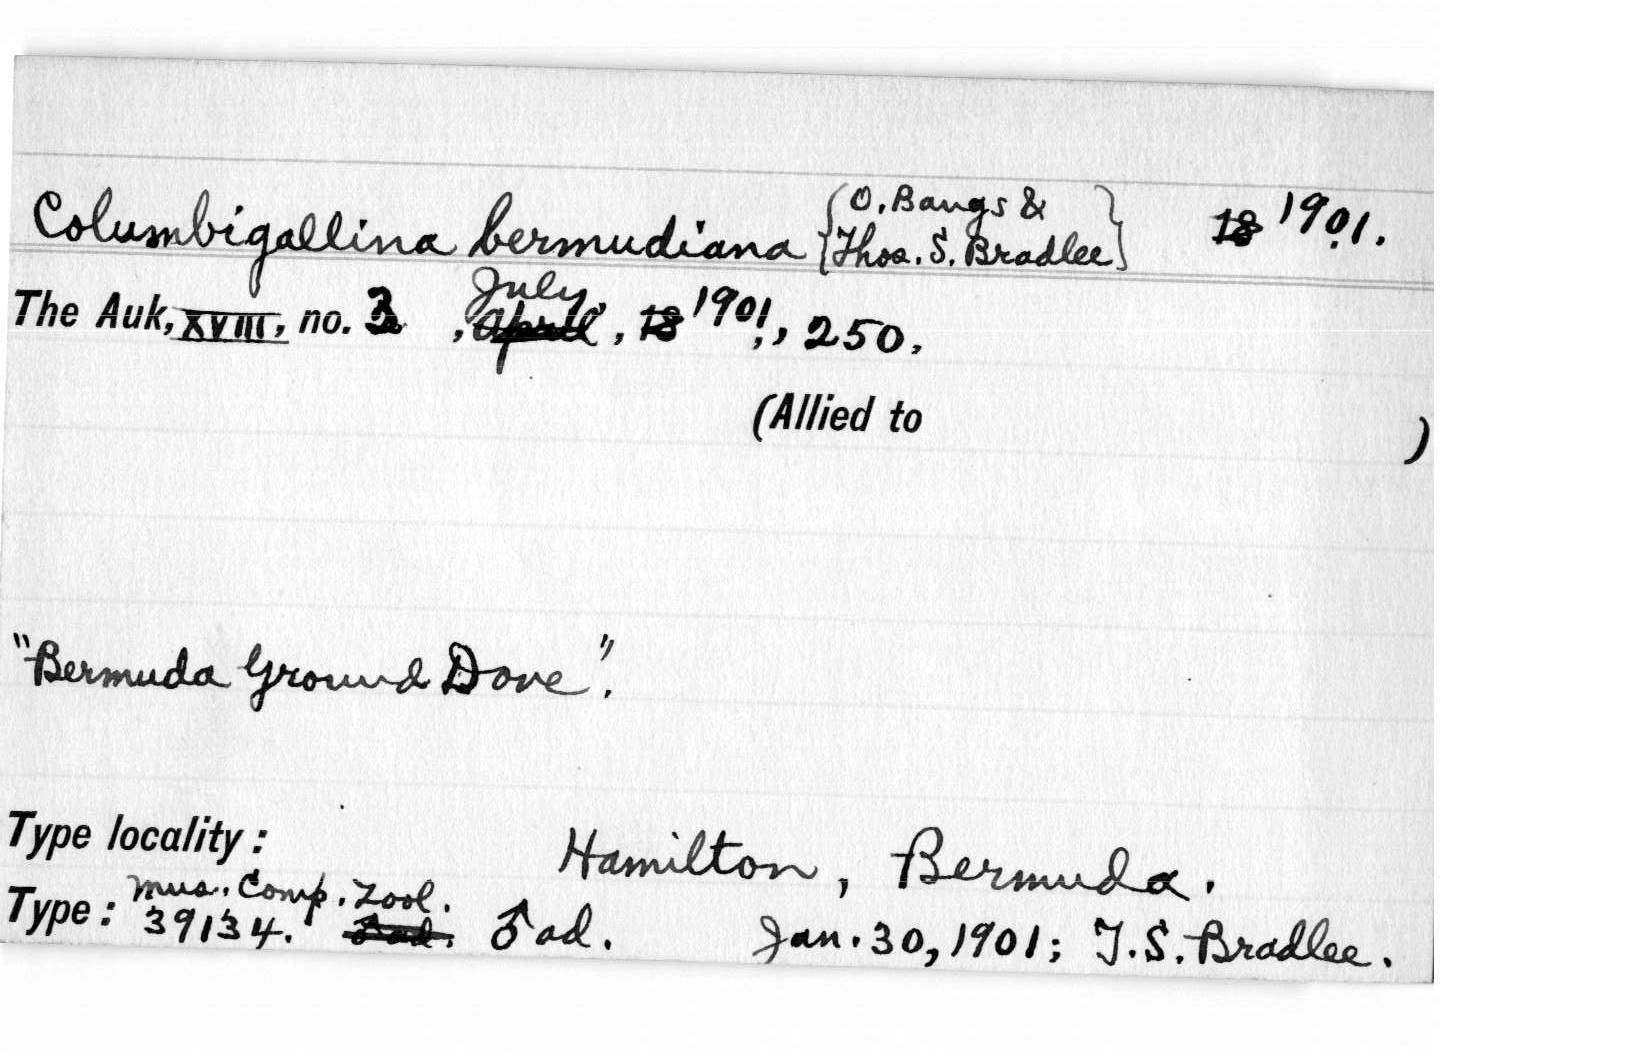 Columbigallina bermudiana { O. Bangs & Thos. S. Bradlee } 18 1901.
July,
The Auk, XVIII, no. 3, April, 18 1901, 250.
(Allied to )
"Bermuda Ground Dove".
Type locality: Hamilton, Bermuda.
Mus. Comp. Zool.
Type: 39134. ♂ad. ♂ad. Jan. 30, 1901; T.S. Bradlee.